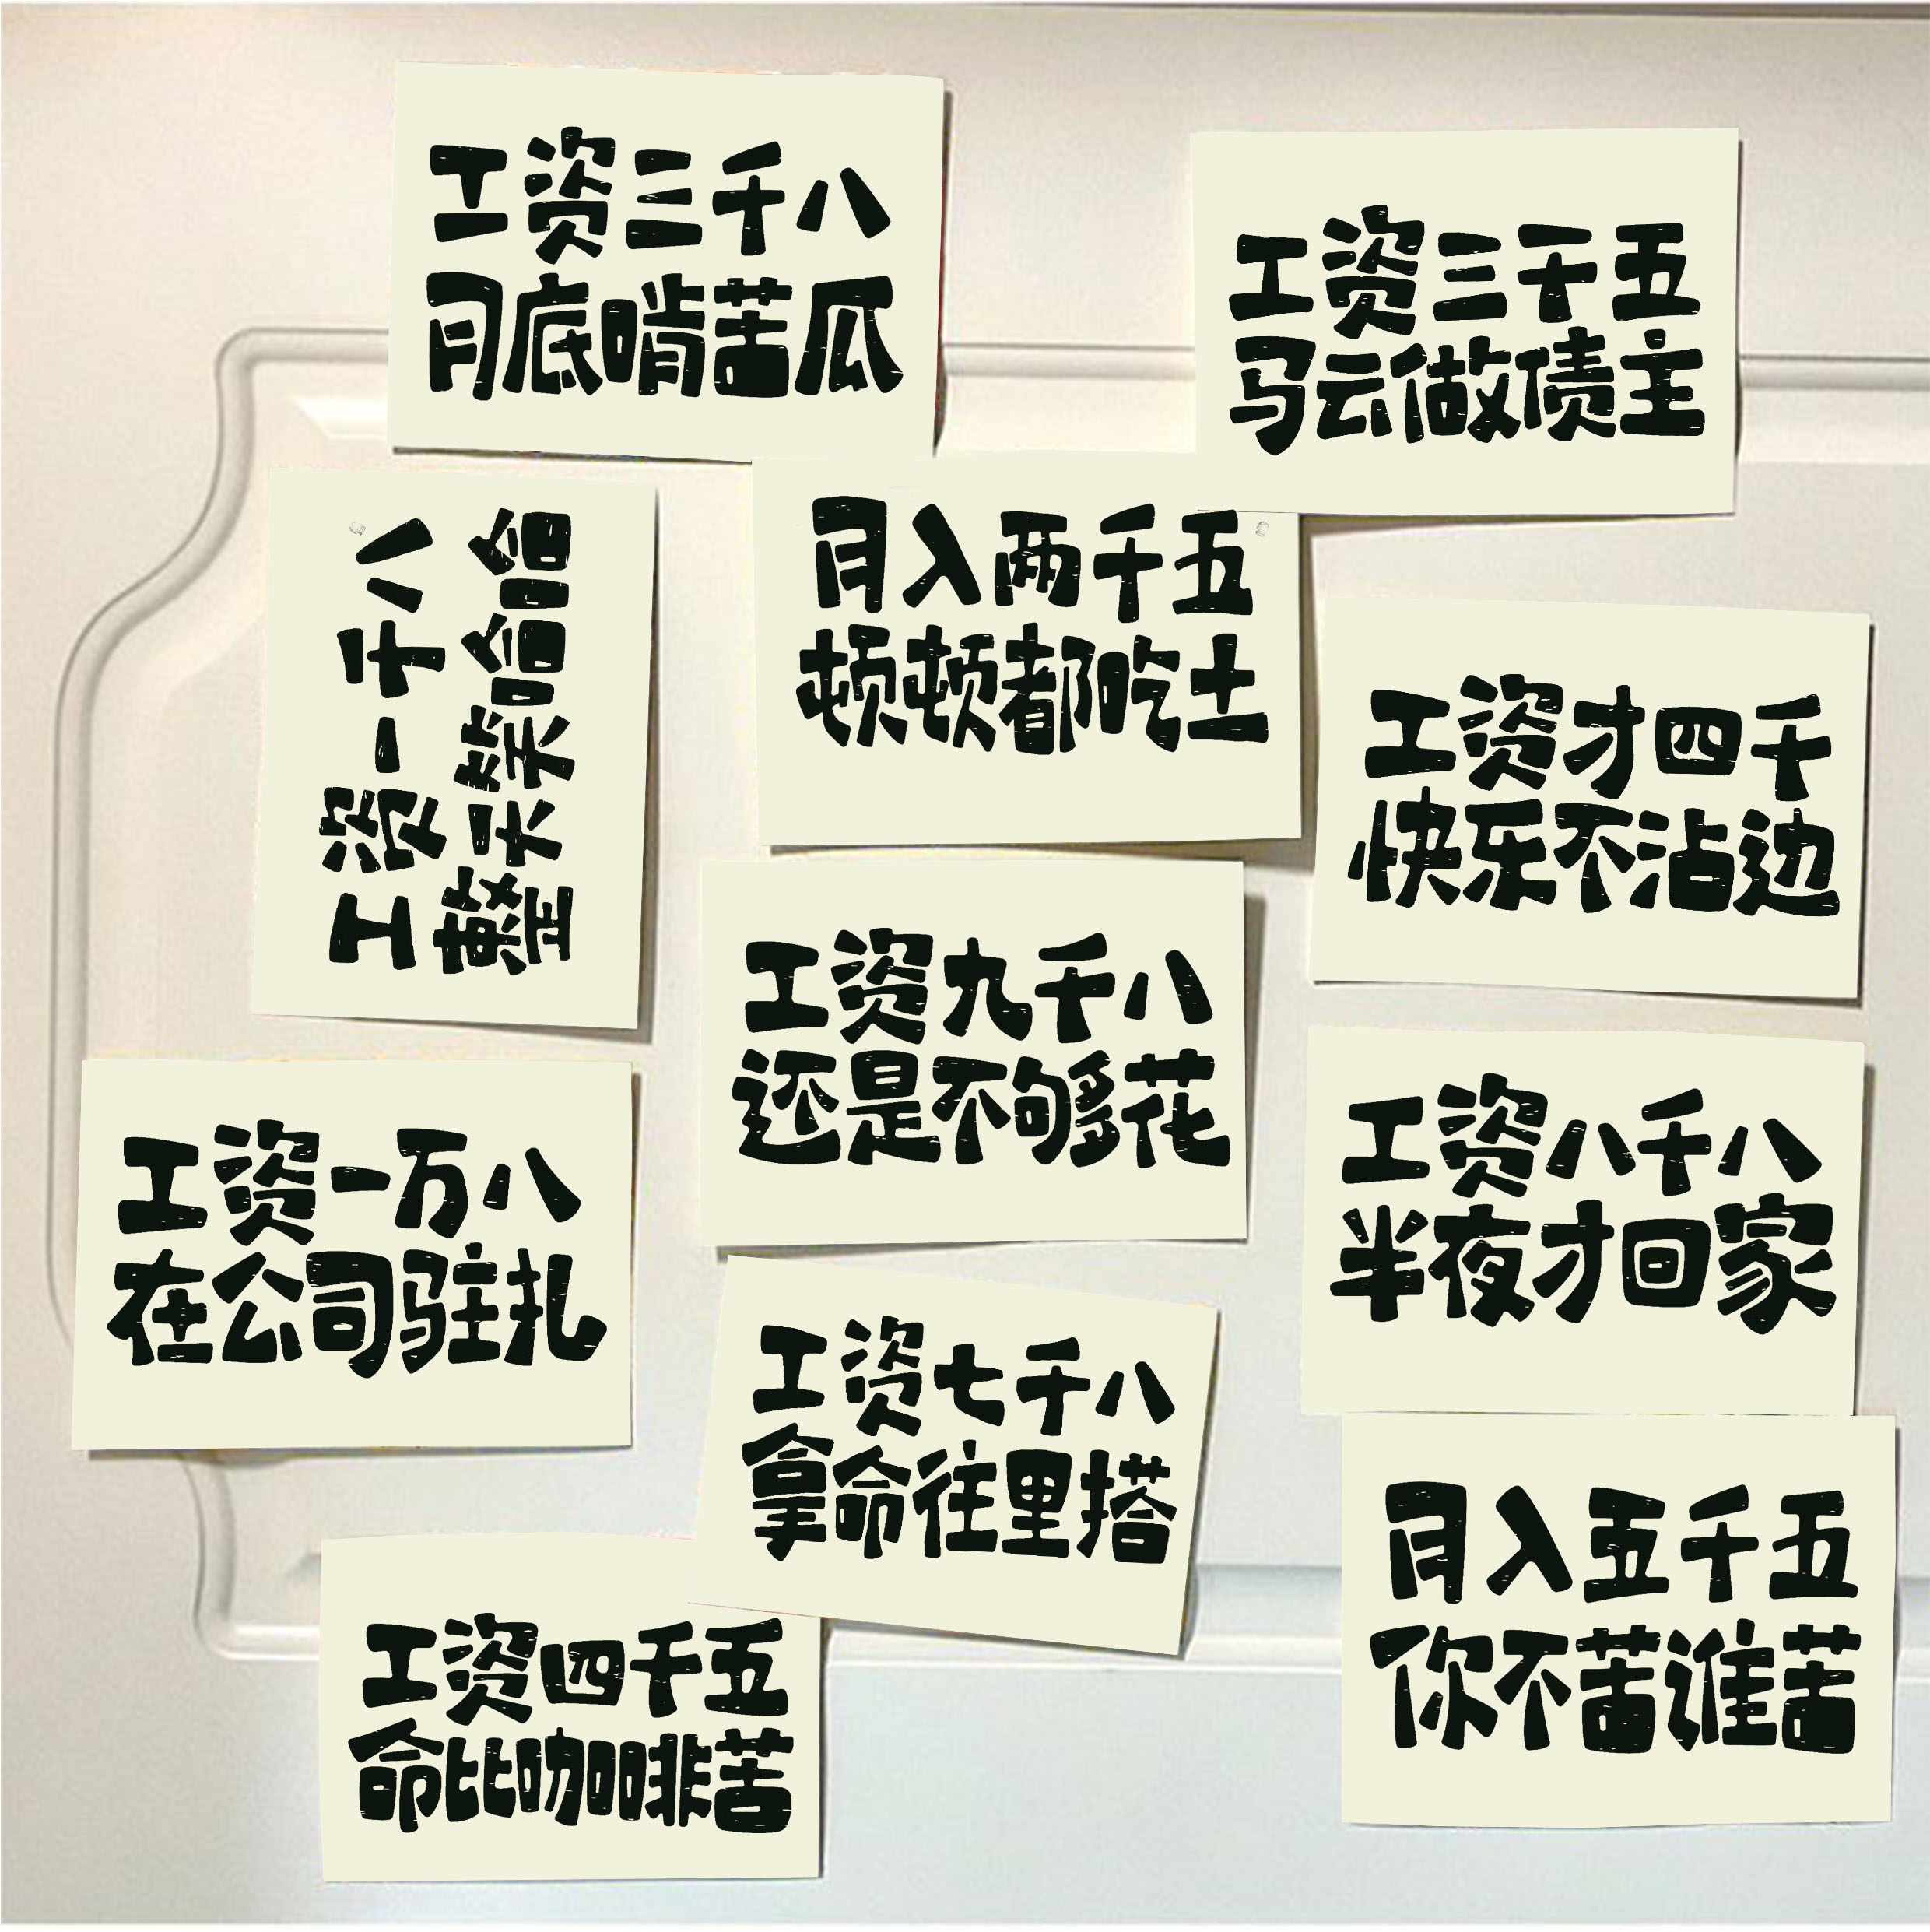 工资三千八
月底啃苦瓜
工资三千五
马云做债主
工资一千八
整天笑哈哈
月入两千五
顿顿都吃土
工资才四千
快乐不沾边
工资九千八
还是不够花
工资一万八
在公司驻扎
工资八千八
半夜才回家
工资七千八
拿命往里搭
月入五千五
你不苦谁苦
工资四千五
命比咖啡苦